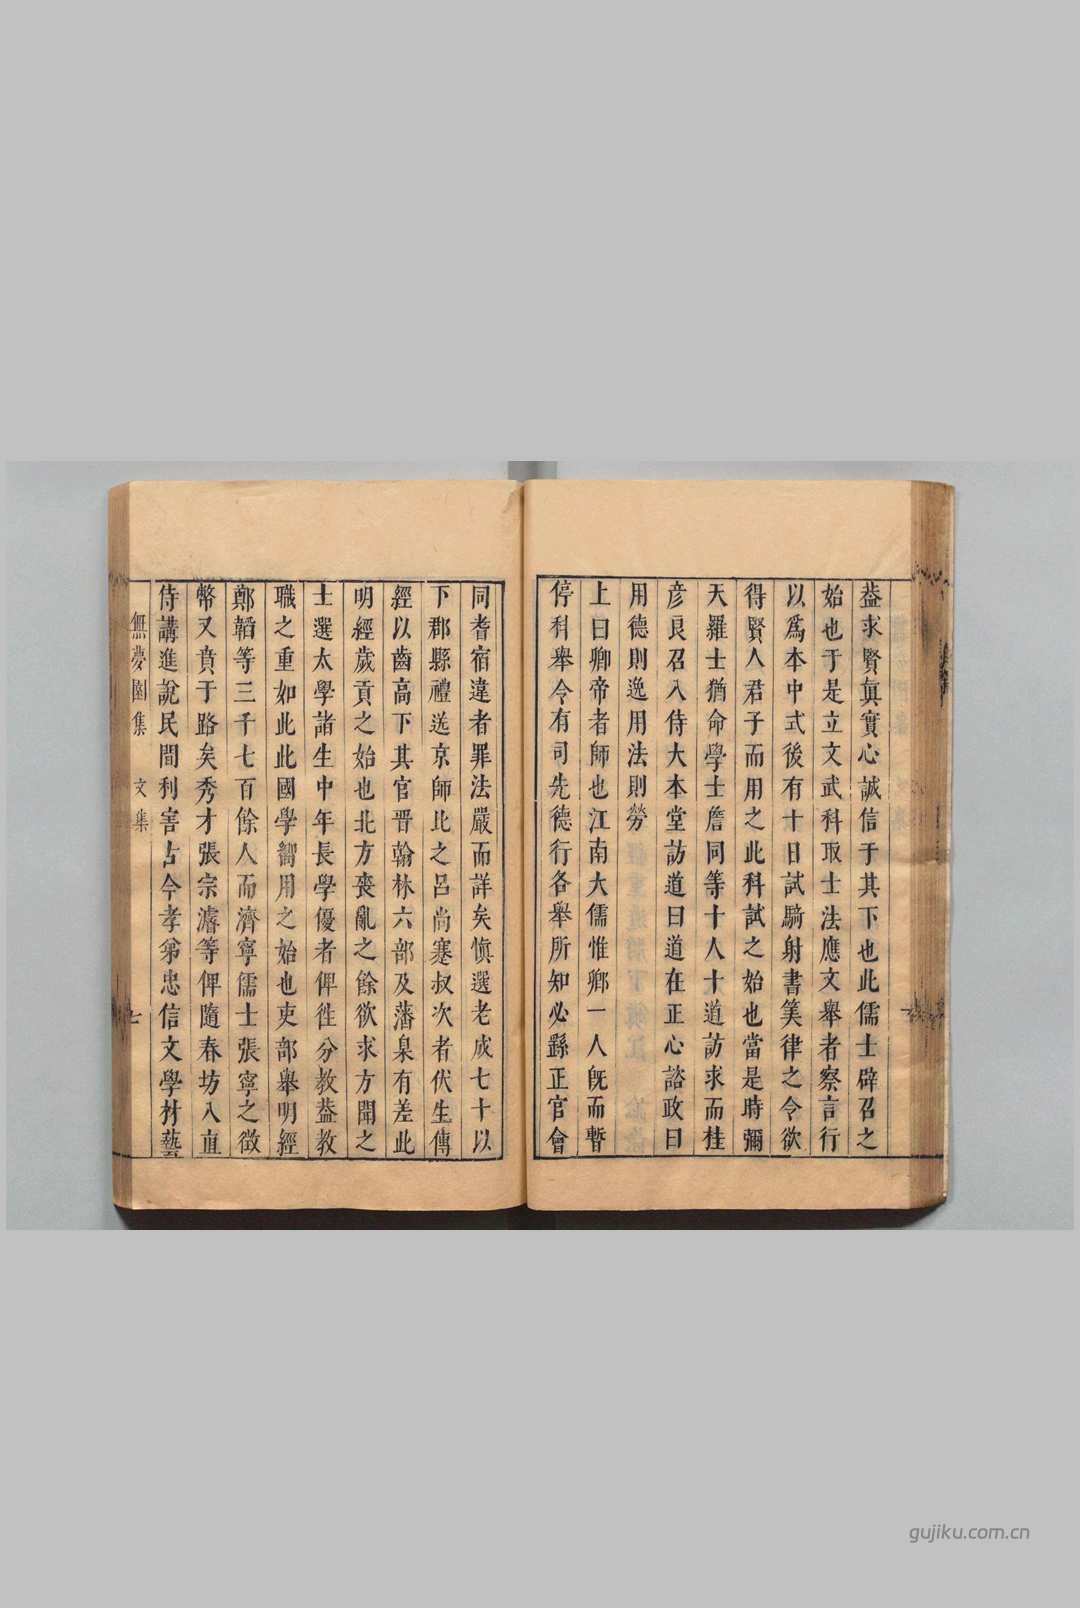 葢求賢眞實心誠信于其下也此儒士辟召之
始也于是立文武科取士法應文舉者察言行
以爲本中式後有十日試騎射書筭律之令欲
得賢人君子而用之此科試之始也當是時彌
天羅士猶命學士詹同等十人十道訪求而桂
彦良召入侍大本堂訪道曰道在正心諮政曰
用德則逸用法則勞
上曰卿帝者師也江南大儒惟卿一人旣而暫
停科舉令有司先德行各舉所知必繇正官會
同耆宿違者罪法嚴而詳矣愼選老成七十以
下郡縣禮送京師比之呂尚蹇叔次者伏生傳
經以齒高下其官晋翰林六部及藩臬有差此
明經歲貢之始也北方喪亂之餘欲求方聞之
士選太學諸生中年長學優者俾徃分教葢教
職之重如此此國學嚮用之始也吏部舉明經
鄭韜等三千七百餘人而濟寧儒士張寧之徵
幣又賁于路矣秀才張宗濬等俾隨春坊入直
侍講進說民間利害古今孝弟忠信文學材藝
無夢園集 文集 七
gujiku.com.cn